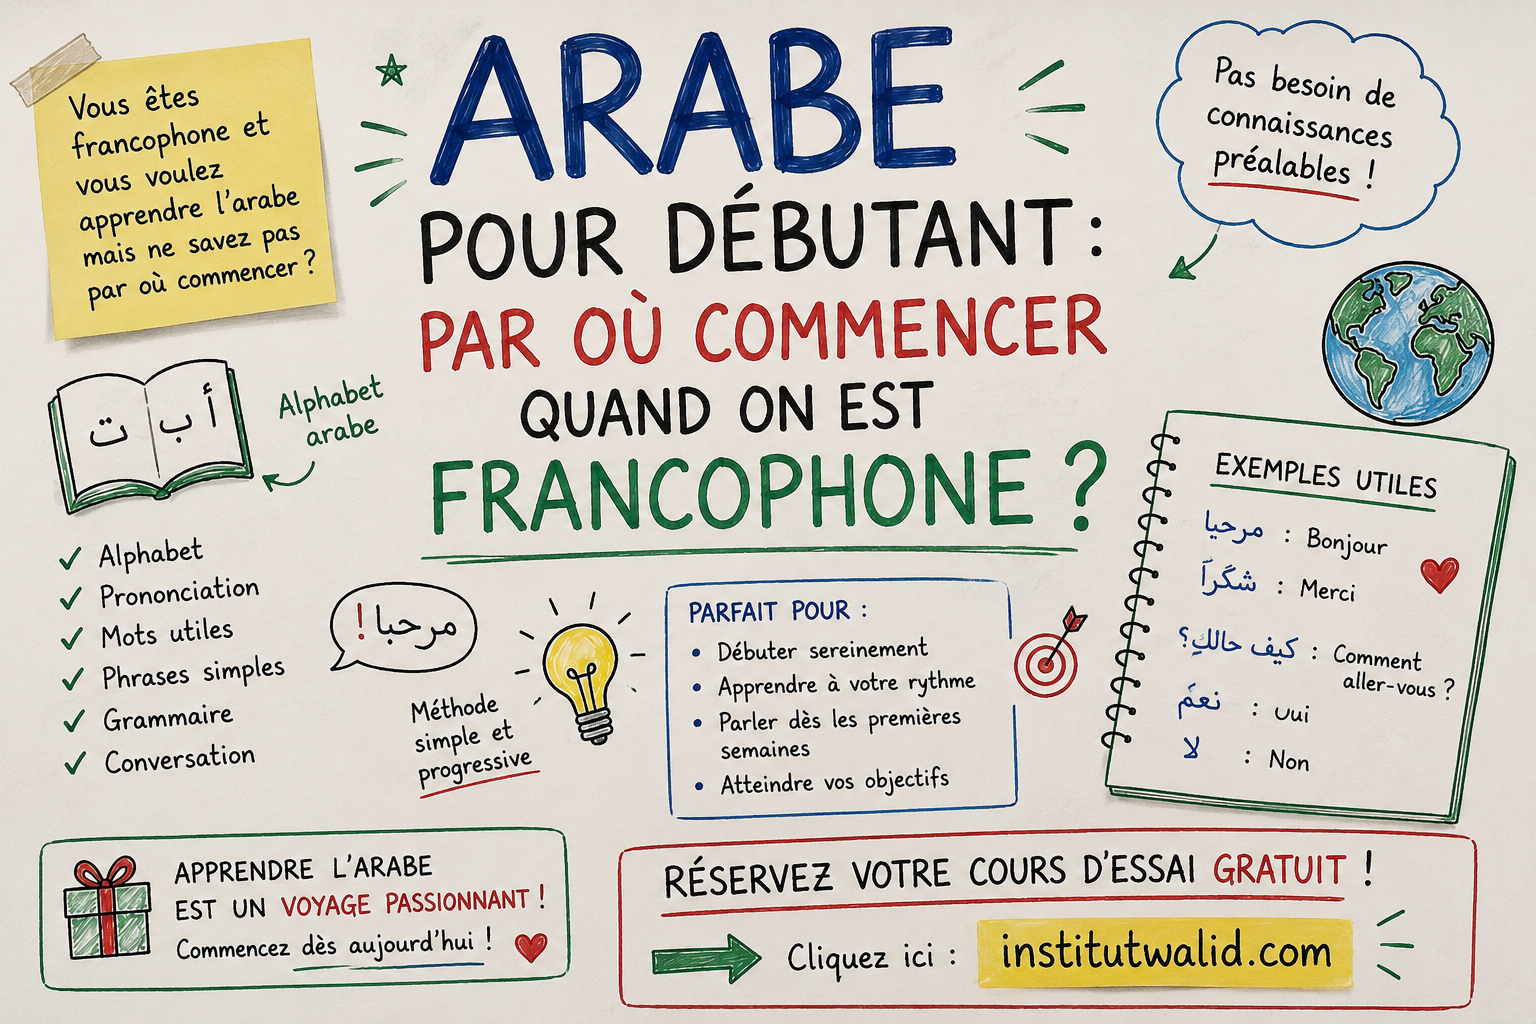 Vous êtes
francophone et
vous voulez
apprendre l'arabe
mais ne savez pas
par où commencer ?
ARABE
POUR DÉBUTANT :
PAR OÙ COMMENCER
QUAND ON EST
FRANCOPHONE ?
Pas besoin de
connaissances
préalables !
أ ب ت
Alphabet
arabe
✓ Alphabet
✓ Prononciation
✓ Mots utiles
✓ Phrases simples
✓ Grammaire
✓ Conversation
مرحبا!
Méthode
simple et
progressive
PARFAIT POUR :
• Débuter sereinement
• Apprendre à votre rythme
• Parler dès les premières
semaines
• Atteindre vos objectifs
EXEMPLES UTILES
مرحيا : Bonjour
شگراً : Merci
كيف حالكِ؟ : Comment
aller-vous ?
نعمَ : uui
لا : Non
APPRENDRE L'ARABE
EST UN VOYAGE PASSIONNANT !
Commencez dès aujourd'hui !
RÉSERVEZ VOTRE COURS D'ESSAI GRATUIT !
Cliquez ici : institutwalid.com